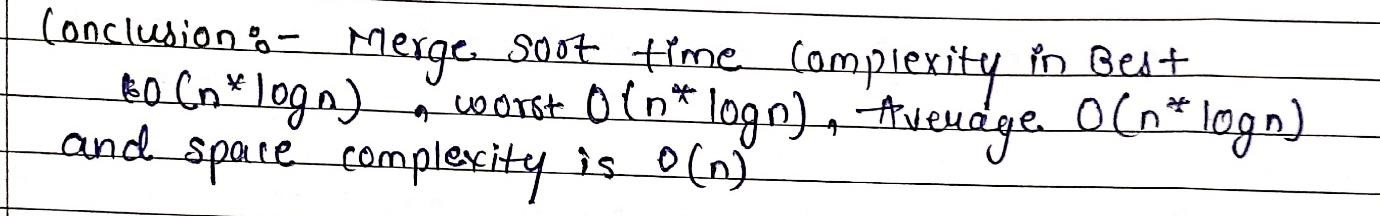 Conclusion :- Merge Soot time Complexity in Best
O(n*logn), woorst O(n*logn), Average O(n*logn)
and space complexity is O(n)